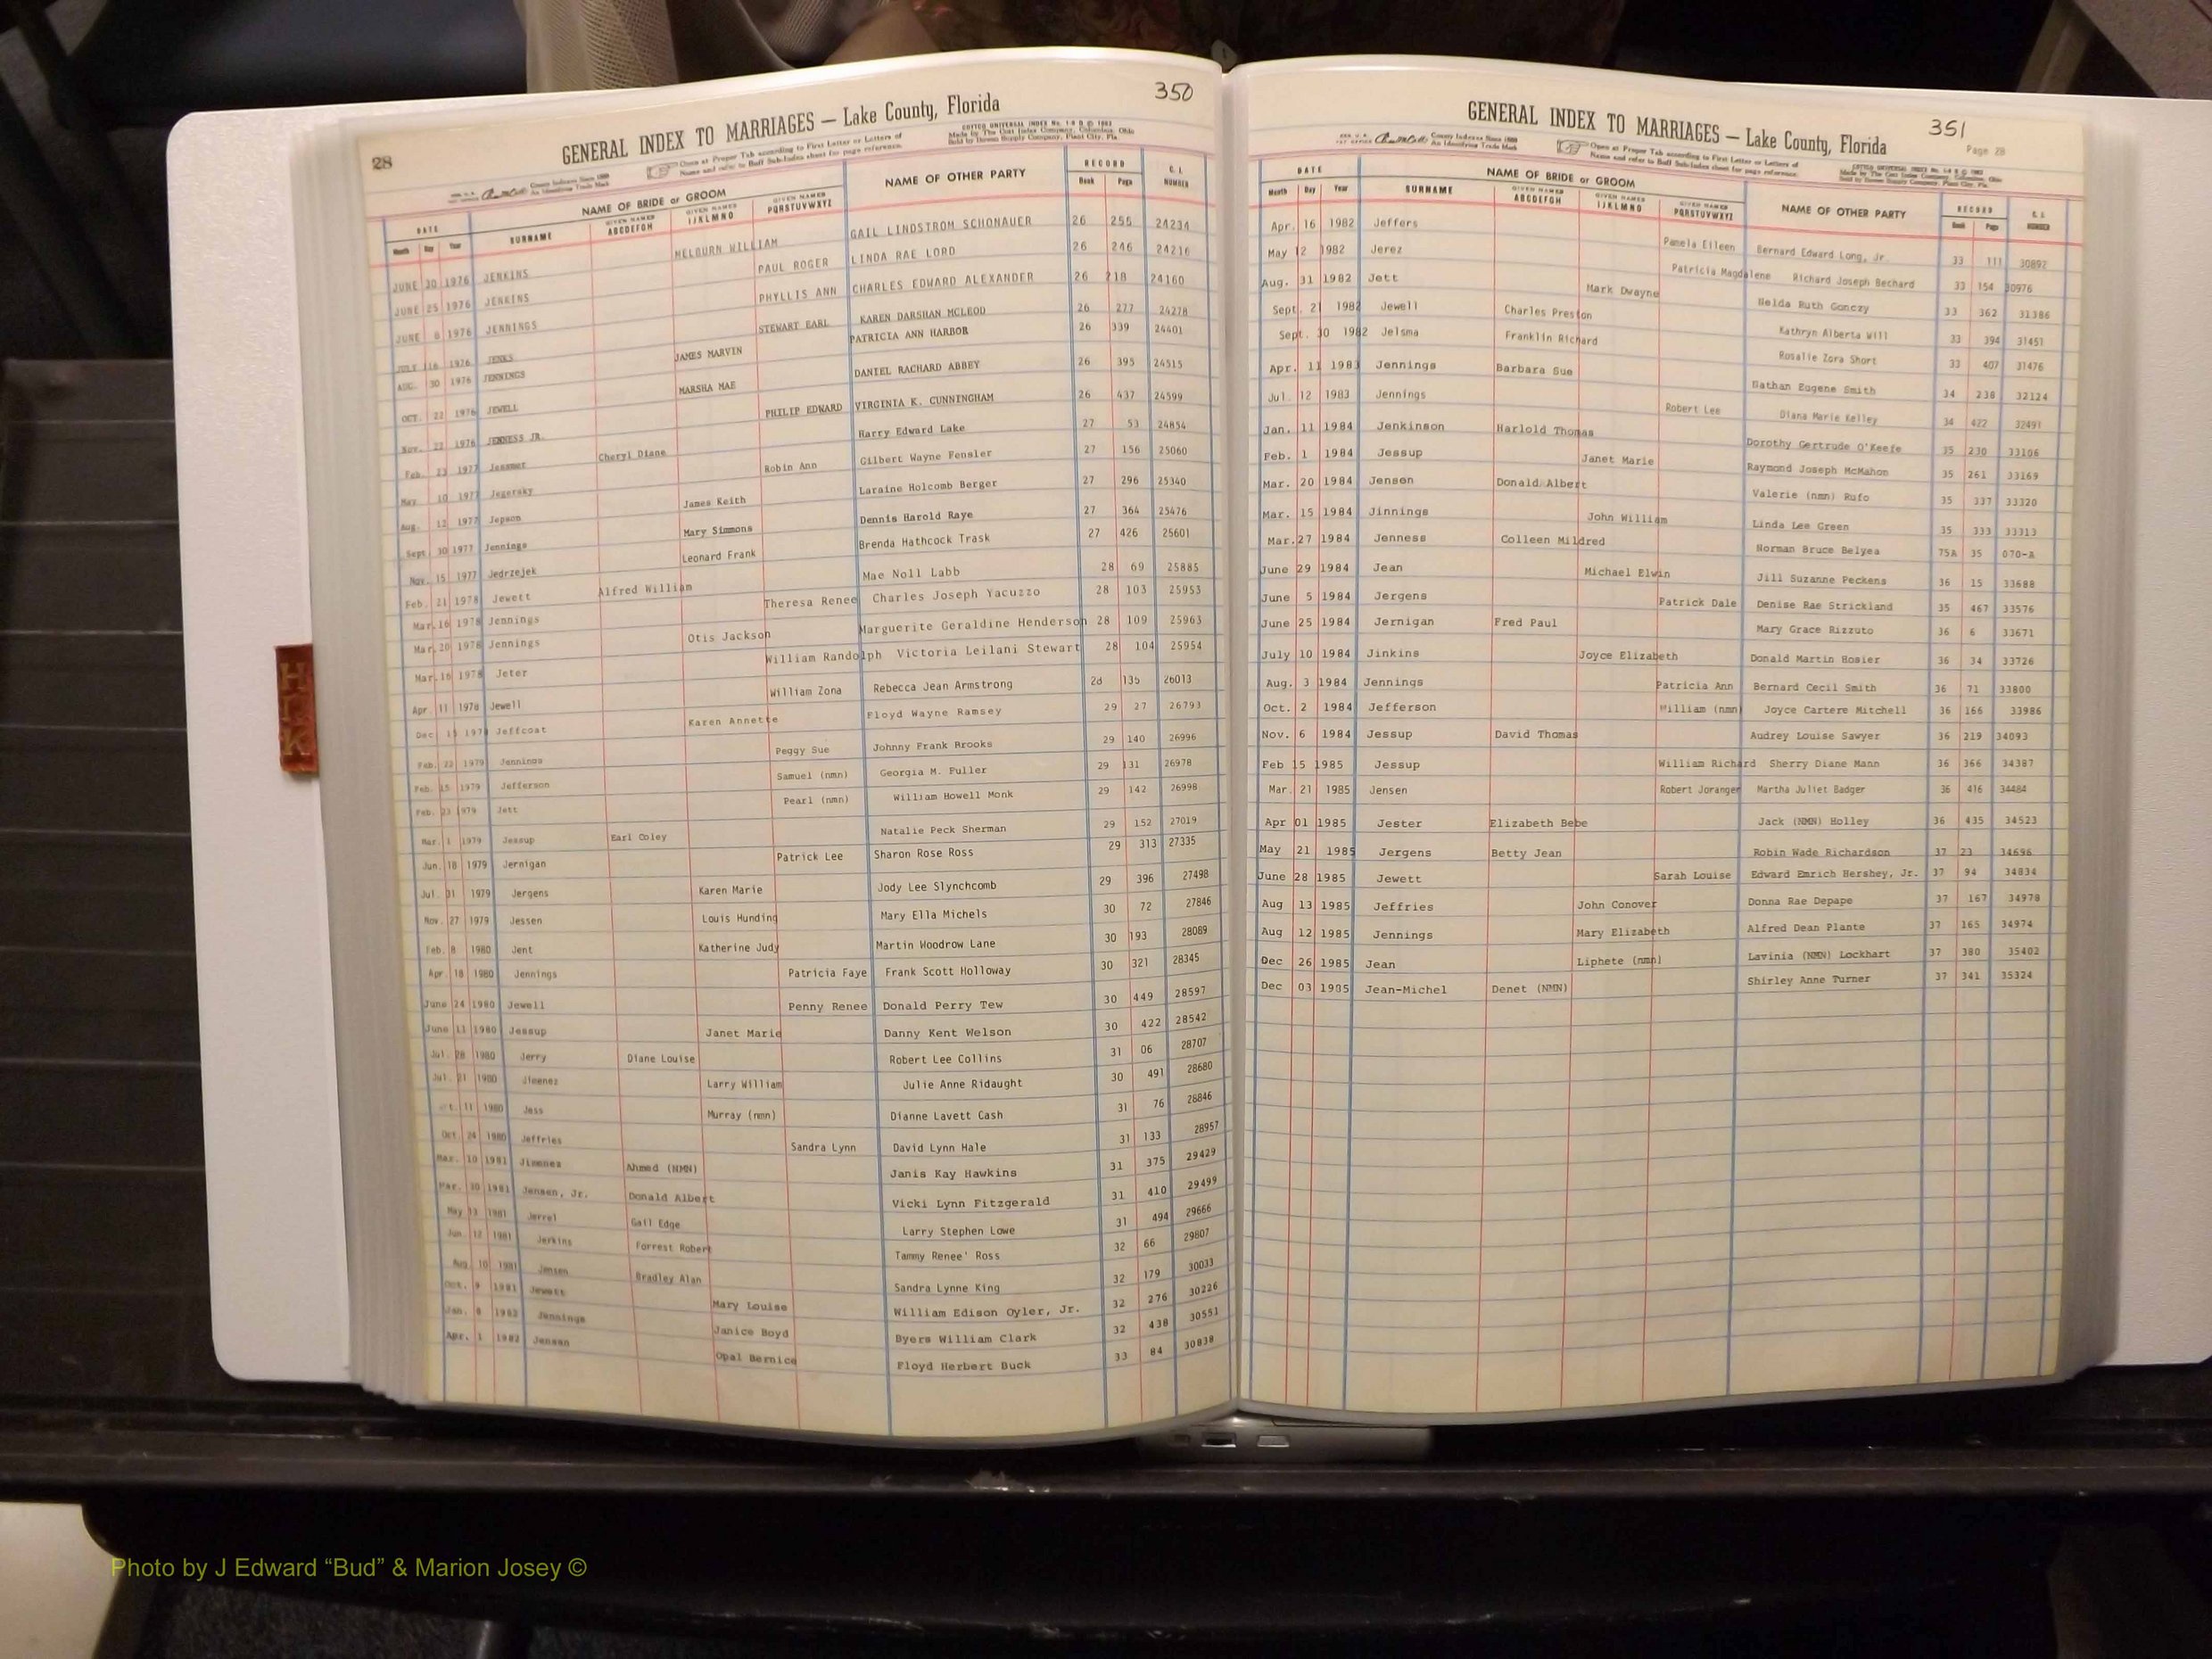 350
28
GENERAL INDEX TO MARRIAGES — Lake County, Florida
Open at Proper Tab according to First Letter or Letters of
Name and refer to Buff Sub-Index sheet for page reference.
NAME OF BRIDE or GROOM NAME OF OTHER PARTY RECORD
DATE SURNAME GIVEN NAMES ABCDEFGH GIVEN NAMES IJKLMNO GIVEN NAMES PQRSTUVWXYZ Book Page NUMBER
Month Day Year
JUNE 30 1976 JENKINS MELBURN WILLIAM GAIL LINDSTROM SCHONAUER 26 255 24234
JUNE 25 1976 JENKINS PAUL ROGER LINDA RAE LORD 26 246 24216
JUNE 6 1976 JENNINGS PHYLLIS ANN CHARLES EDWARD ALEXANDER 26 218 24160
JULY 16 1976 JENKS STEWART EARL KAREN DARSHAN MCLEOD 26 277 24278
AUG. 30 1976 JENNINGS JAMES MARVIN PATRICIA ANN HARBOR 26 339 24401
OCT. 22 1976 JEWELL MARSHA MAE DANIEL RACHARD ABBEY 26 395 24515
Nov. 22 1976 JENNESS JR. PHILIP EDWARD VIRGINIA K. CUNNINGHAM 26 437 24599
Feb. 23 1977 Cheryl Diane Harry Edward Lake 27 53 24854
May 10 1977 Jegersky Robin Ann Gilbert Wayne Fensler 27 156 25060
Aug. 12 1977 Jepson James Keith Laraine Holcomb Berger 27 296 25340
Sept 30 1977 Jennings Mary Simmons Dennis Harold Raye 27 364 25476
Nov. 15 1977 Jedrzejek Leonard Frank Brenda Hathcock Trask 27 426 25601
Feb. 21 1978 Jewett Alfred William Mae Noll Labb 28 69 25885
Mar. 16 1978 Jennings Theresa Renee Charles Joseph Yacuzzo 28 103 25953
Mar. 20 1978 Jennings Otis Jackson Marguerite Geraldine Henderson 28 109 25963
Mar. 16 1978 Jeter William Randolph Victoria Leilani Stewart 28 104 25954
Apr. 11 1978 Jewell William Zona Rebecca Jean Armstrong 28 135 26013
Dec 1978 Jeffcoat Karen Annette Floyd Wayne Ramsey 29 27 26793
Feb. 22 1979 Jennings Peggy Sue Johnny Frank Brooks 29 140 26996
Feb. 15 1979 Jefferson Samuel (nmn) Georgia M. Fuller 29 131 26978
Feb. 23 1979 Jett Pearl (nmn) William Howell Monk 29 142 26998
Mar. 1 1979 Jessup Earl Coley Natalie Peck Sherman 29 152 27019
Jun. 18 1979 Jernigan Patrick Lee Sharon Rose Ross 29 313 27335
Jul. 31 1979 Jergens Karen Marie Jody Lee Slynchcomb 29 396 27498
Nov. 27 1979 Jessen Louis Hunding Mary Ella Michels 30 72 27846
Feb. 8 1980 Jent Katherine Judy Martin Woodrow Lane 30 193 28089
Apr. 18 1980 Jennings Patricia Faye Frank Scott Holloway 30 321 28345
June 24 1980 Jewell Penny Renee Donald Perry Tew 30 449 28597
June 11 1980 Jessup Janet Marie Danny Kent Welson 30 422 28542
Jul. 28 1980 Jerry Diane Louise Robert Lee Collins 31 06 28707
Jul. 21 1980 Jimenez Larry William Julie Anne Ridaught 30 491 28680
11 1980 Jess Murray (nmn) Dianne Lavett Cash 31 76 28846
Oct. 24 1980 Jeffries Sandra Lynn David Lynn Hale 31 133 28957
Mar. 10 1981 Jimenez Ahmed (NMN) Janis Kay Hawkins 31 375 29429
Mar. 30 1981 Jensen, Jr. Donald Albert Vicki Lynn Fitzgerald 31 410 29499
May 13 1981 Jerrel Gail Edge Larry Stephen Lowe 31 494 29666
Jun. 12 1981 Jerkins Forrest Robert Tammy Renee' Ross 32 66 29807
Aug. 10 1981 Jensen Bradley Alan Sandra Lynne King 32 179 30033
Oct. 9 1981 Jewett Mary Louise William Edison Oyler, Jr. 32 276 30226
Jan. 8 1982 Jennings Janice Boyd Byers William Clark 32 438 30551
Apr. 1 1982 Jensen Opal Bernice Floyd Herbert Buck 33 84 30838
351
Page 28
GENERAL INDEX TO MARRIAGES — Lake County, Florida
Open at Proper Tab according to First Letter or Letters of
Name and refer to Buff Sub-Index sheet for page reference.
DATE NAME OF BRIDE or GROOM NAME OF OTHER PARTY RECORD
Month Day Year SURNAME GIVEN NAMES ABCDEFGH GIVEN NAMES IJKLMNO GIVEN NAMES PQRSTUVWXYZ Book Page NUMBER
Apr. 16 1982 Jeffers Pamela Eileen Bernard Edward Long, Jr. 33 111 30892
May 12 1982 Jerez Patricia Magdalene Richard Joseph Bechard 33 154 30976
Aug. 31 1982 Jett Mark Dwayne Nelda Ruth Gonczy 33 362 31386
Sept. 21 1982 Jewell Charles Preston Kathryn Alberta Will 33 394 31451
Sept. 30 1982 Jelsma Franklin Richard Rosalie Zora Short 33 407 31476
Apr. 11 1983 Jennings Barbara Sue Nathan Eugene Smith 34 238 32124
Jul. 12 1983 Jennings Robert Lee Diana Marie Kelley 34 422 32491
Jan. 11 1984 Jenkinson Harlold Thomas Dorothy Gertrude O'Keefe 35 230 33106
Feb. 1 1984 Jessup Janet Marie Raymond Joseph McMahon 35 261 33169
Mar. 20 1984 Jensen Donald Albert Valerie (nmn) Rufo 35 337 33320
Mar. 15 1984 Jinnings John William Linda Lee Green 35 333 33313
Mar. 27 1984 Jenness Colleen Mildred Norman Bruce Belyea 75A 35 070-A
June 29 1984 Jean Michael Elwin Jill Suzanne Peckens 36 15 33688
June 5 1984 Jergens Patrick Dale Denise Rae Strickland 35 467 33576
June 25 1984 Jernigan Fred Paul Mary Grace Rizzuto 36 6 33671
July 10 1984 Jinkins Joyce Elizabeth Donald Martin Hosier 36 34 33726
Aug. 3 1984 Jennings Patricia Ann Bernard Cecil Smith 36 71 33800
Oct. 2 1984 Jefferson William (nmn) Joyce Cartere Mitchell 36 166 33986
Nov. 6 1984 Jessup David Thomas Audrey Louise Sawyer 36 219 34093
Feb 15 1985 Jessup William Richard Sherry Diane Mann 36 366 34387
Mar. 21 1985 Jensen Robert Joranger Martha Juliet Badger 36 416 34484
Apr 01 1985 Jester Elizabeth Bebe Jack (NMN) Holley 36 435 34523
May 21 1985 Jergens Betty Jean Robin Wade Richardson 37 23 34696
June 28 1985 Jewett Sarah Louise Edward Emrich Hershey, Jr. 37 94 34834
Aug 13 1985 Jeffries John Conover Donna Rae Depape 37 167 34978
Aug 12 1985 Jennings Mary Elizabeth Alfred Dean Plante 37 165 34974
Dec 26 1985 Jean Liphete (nmn) Lavinia (NMN) Lockhart 37 380 35402
Dec 03 1985 Jean-Michel Denet (NMN) Shirley Anne Turner 37 341 35324
Photo by J Edward “Bud” & Marion Josey ©